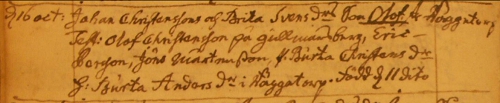 d 16 oct: Johan Christenssons och Brita Svens dtr Son Olof, fr Höggatorp
Test: Olof Christensson på gullmarsberg, Eric
Bergon, Jöns Mårtensson, H. Bürta Christens dtr
G: Bürta Anders dtr i Häggatorp. Född d 11 dito